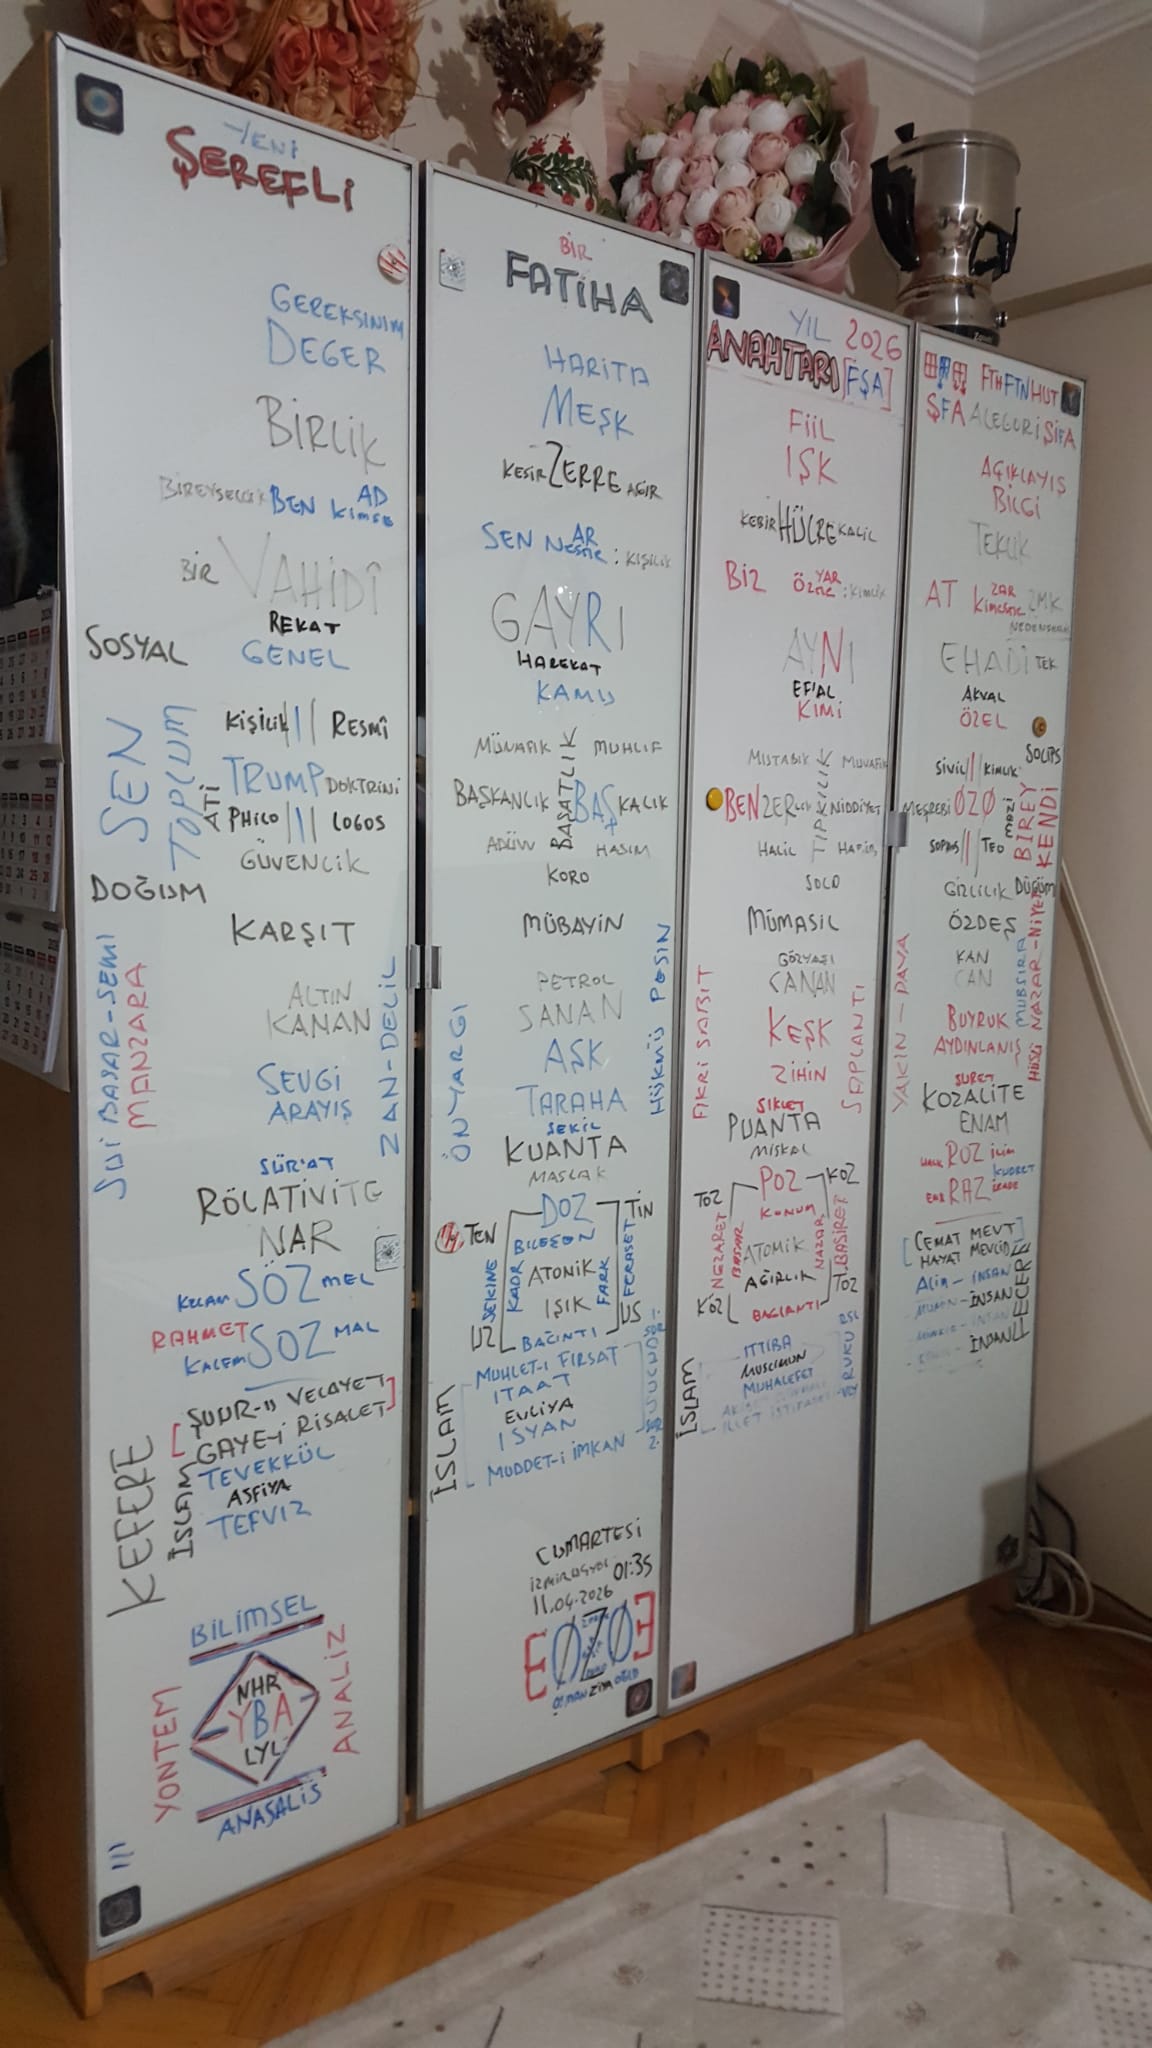 YENİ
ŞEREFLİ
GEREKSİNİM
DEĞER
BİRLİK
BİREYSELLİK BEN AD KİMSE
BİR VAHİDÎ
REKAT
SOSYAL GENEL
SEN
TOPLUM
KİŞİLİK RESMÎ
ATİ
TRUMP DOKTRİNİ
PHİLO LOGOS
GÜVENLİK
DOĞUM
KARŞIT
SUİ BASAR-SEMİ
MANZARA
ZAN-DELİL
ALTIN
KANAN
SEVGİ
ARAYIŞ
SÜR'AT
RÖLATİVİTE
NAR
KELAM SÖZ MEL
RAHMET
KALEM SOZ MAL
KEFERE
İSLAM
ŞUUR-U VELAYET
GAYE-İ RİSALET
TEVEKKÜL
ASFİYA
TEFVİZ
BİLİMSEL
YÖNTEM
NHR
YBA
LYL
ANALİZ
ANASALİS
BİR
FATİHA
HARİTA
MEŞK
KESİR ZERRE AĞIR
SEN AR NESNE : KİŞİLİK
GAYRI
HAREKAT
KAMU
MÜNAFIK MUHLİF
BASATLIK
BAŞKANLIK BAŞKALIK
ADÜVV HASIM
KORO
MÜBAYİN
ÖNYARGI
HÜKMÜ PEŞİN
PETROL
SANAN
AŞK
TARAHA
ŞEKİL
KUANTA
MASLAK
TEN DOZ TİN
BİLEŞEN
SEKİNE KADR ATONİK FARK FERASET
IŞIK
UZ BAĞINTI US
İSLAM
MUHLET-İ FIRSAT
İTAAT
EVLİYA
İSYAN
MÜDDET-İ İMKAN
CUMARTESİ
01:35
11.04.2026
OSMAN ZİYA OĞLU
YIL 2026
ANAHTARI [FŞA]
FİİL
IŞK
KEBİR HÜCRE KALİL
BİZ YAR ÖZNE : KİMLİK
AYNI
EF'AL
KİMİ
MUTABIK MUVAFIK
TIPKILIK
BENZERLİK NİDDİYET
HALİL
SOLO
MÜMASİL
FİKRİ SABİT
SAPLANTI
GÖZYAŞI
CANAN
KEŞK
ZİHİN
SIKLET
PUANTA
MİSKAL
TOZ POZ KOZ
KONUM
NEZARET BASAR ATOMİK NAZAR BASİRET
AĞIRLIK
KOZ BAĞLANTI TOZ
İSLAM
İTTİBA
MÜSLÜMÜN
MUHALEFET
RUKU
FTH FTN HUT
ŞFA ALEGORİ ŞİFA
AÇIKLAYIŞ
BİLGİ
TEKLİK
AT ZAR KİMESNE ZMK
NEDENSELLİK
EHADİ TEK
AKVAL
ÖZEL
SOLİPS
SİVİL KİMLİK
MEŞREBİ ØZØ
MAZİ
BİREY
KENDİ
SOPHOS TEO
GİZLİLİK DÜĞÜM
ÖZDEŞ
YAKIN-DAVA
KAN
CAN
MUBSIRA
HÜSN-Ü NAZAR-NİYET
BUYRUK
AYDINLANIŞ
SURET
KOZALİTE
ENAM
HALK ROZ İLİM
KUDRET
EMR RAZ İRADE
CEMAT MEVT
HAYAT MEVLİD
ECERE
ALİM-İNSAN
MÜMİN-İNSAN